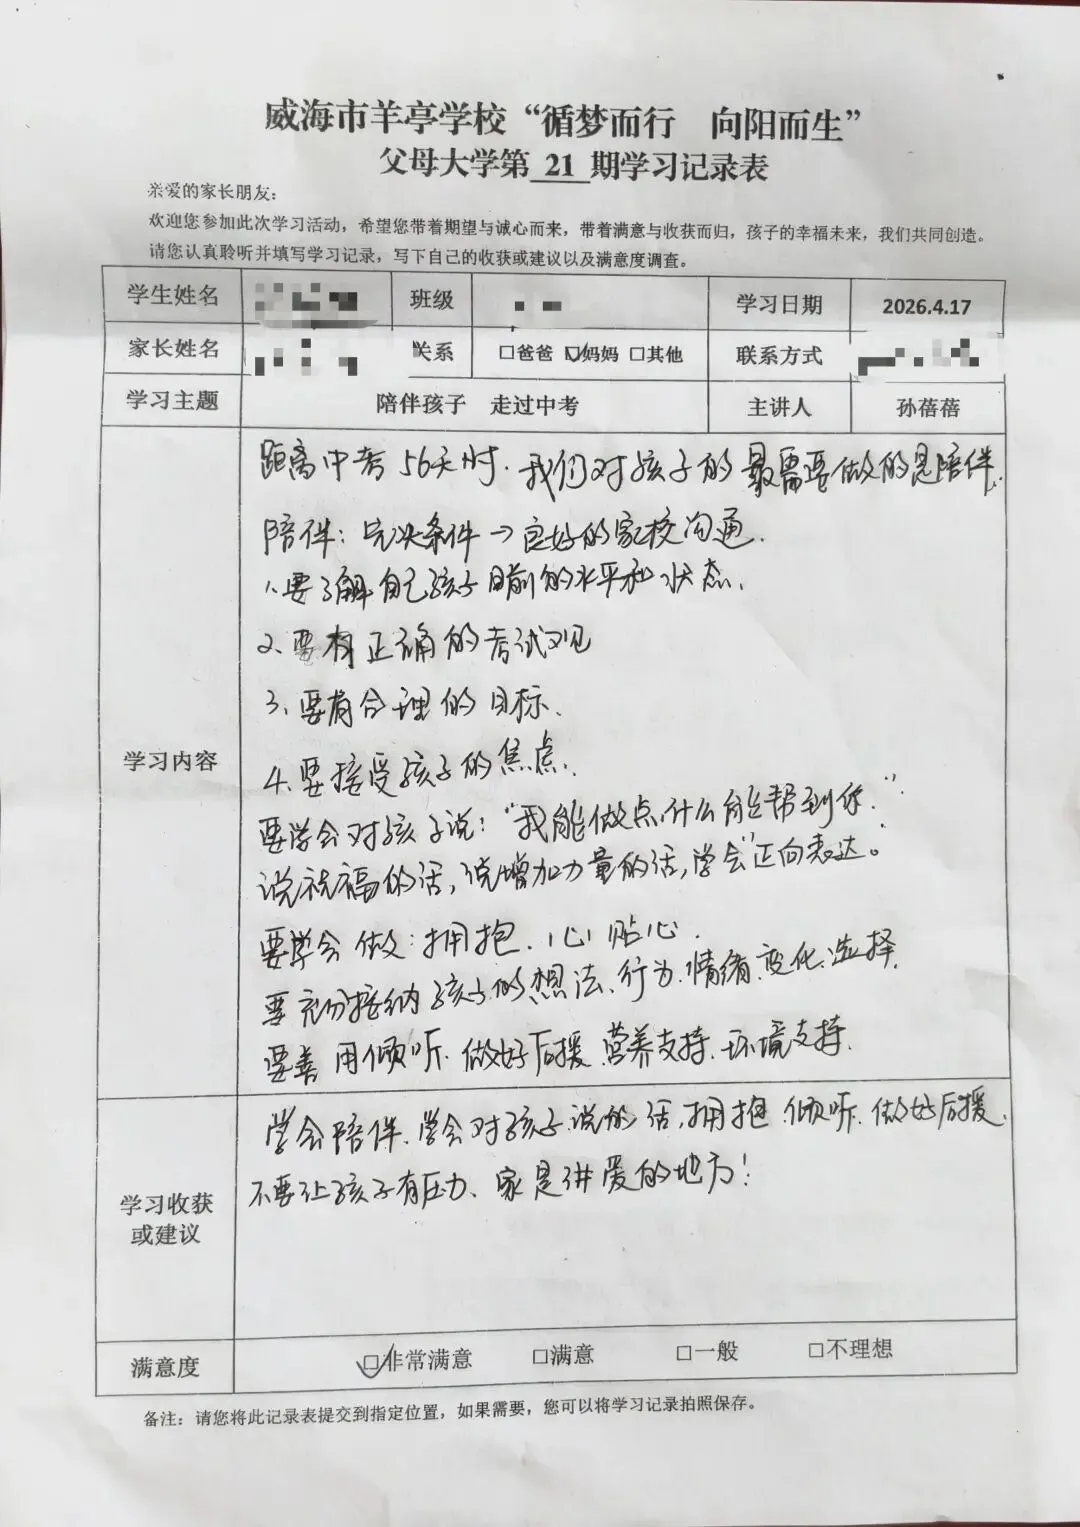 威海市羊亭学校“循梦而行 向阳而生”
父母大学第 21 期学习记录表
亲爱的家长朋友：
欢迎您参加此次学习活动，希望您带着期望与诚心而来，带着满意与收获而归，孩子的幸福未来，我们共同创造。
请您认真聆听并填写学习记录，写下自己的收获或建议以及满意度调查。
学生姓名 班级 学习日期 2026.4.17
家长姓名 关系 □爸爸 ☑妈妈 □其他 联系方式
学习主题 陪伴孩子 走过中考 主讲人 孙蓓蓓
学习内容
距离中考56天时.我们对孩子的最需要做的是陪伴.
陪伴：先决条件→良好的家校沟通.
1.要了解自己孩子目前的水平和状态.
2.要有正确的考试观
3.要有合理的目标.
4.要接受孩子的焦虑.
要学会对孩子说：“我能做点什么能帮到你.”
说祝福的话,说增加力量的话,学会"正向表达。
要学会做：拥抱.心贴心.
要充分接纳孩子的想法、行为.情绪.变化.选择.
要善用倾听.做好后援.营养支持.环境支持.
学习收获
或建议
学会陪伴.学会对孩子说的话,拥抱.倾听.做好后援.
不要让孩子有压力、家是讲爱的地方！
满意度 ☑非常满意 □满意 □一般 □不理想
备注：请您将此记录表提交到指定位置，如果需要，您可以将学习记录拍照保存。